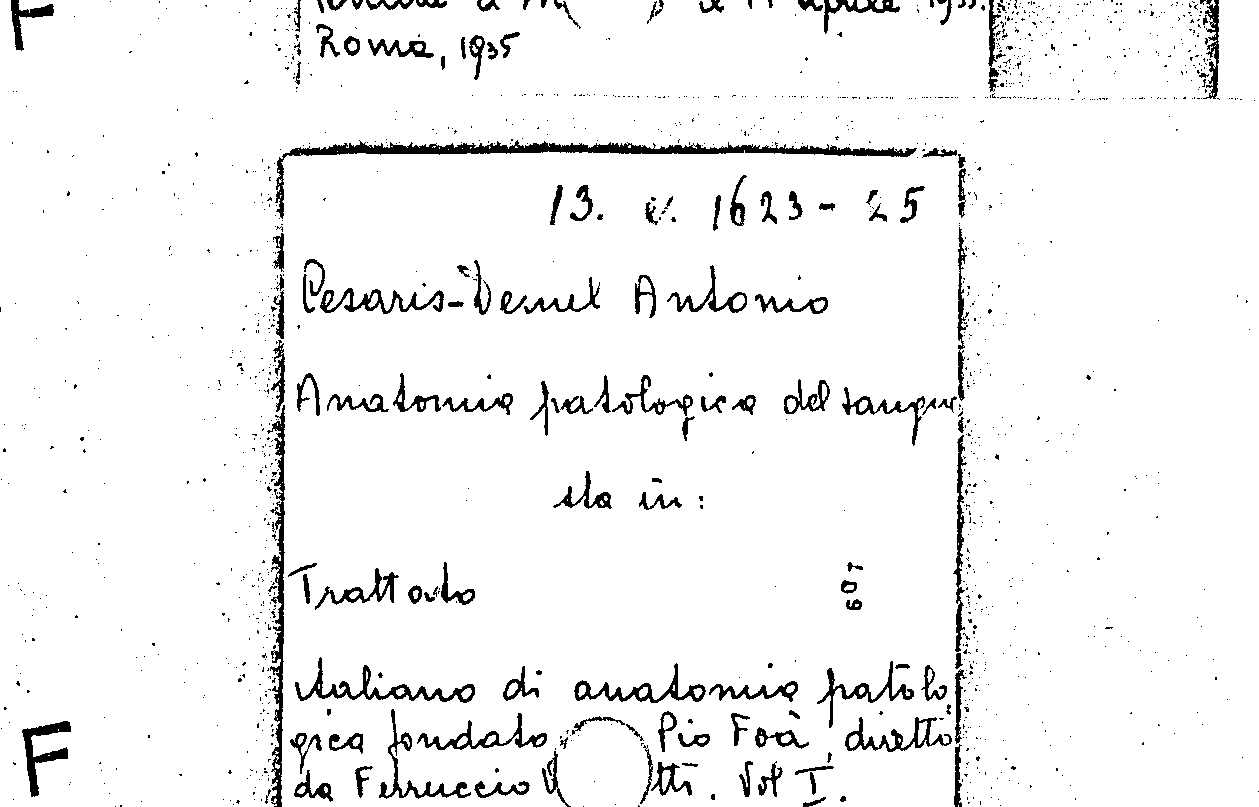 F
Roma, 1935
13. v. 1623-25
Cesaris-Demel Antonio
Anatomia patologica del sangue
sta in:
Trattato
607
italiano di anatomia patolo
gica fondato Pio Foà, diretto
F
da Ferruccio tti. Vol I.